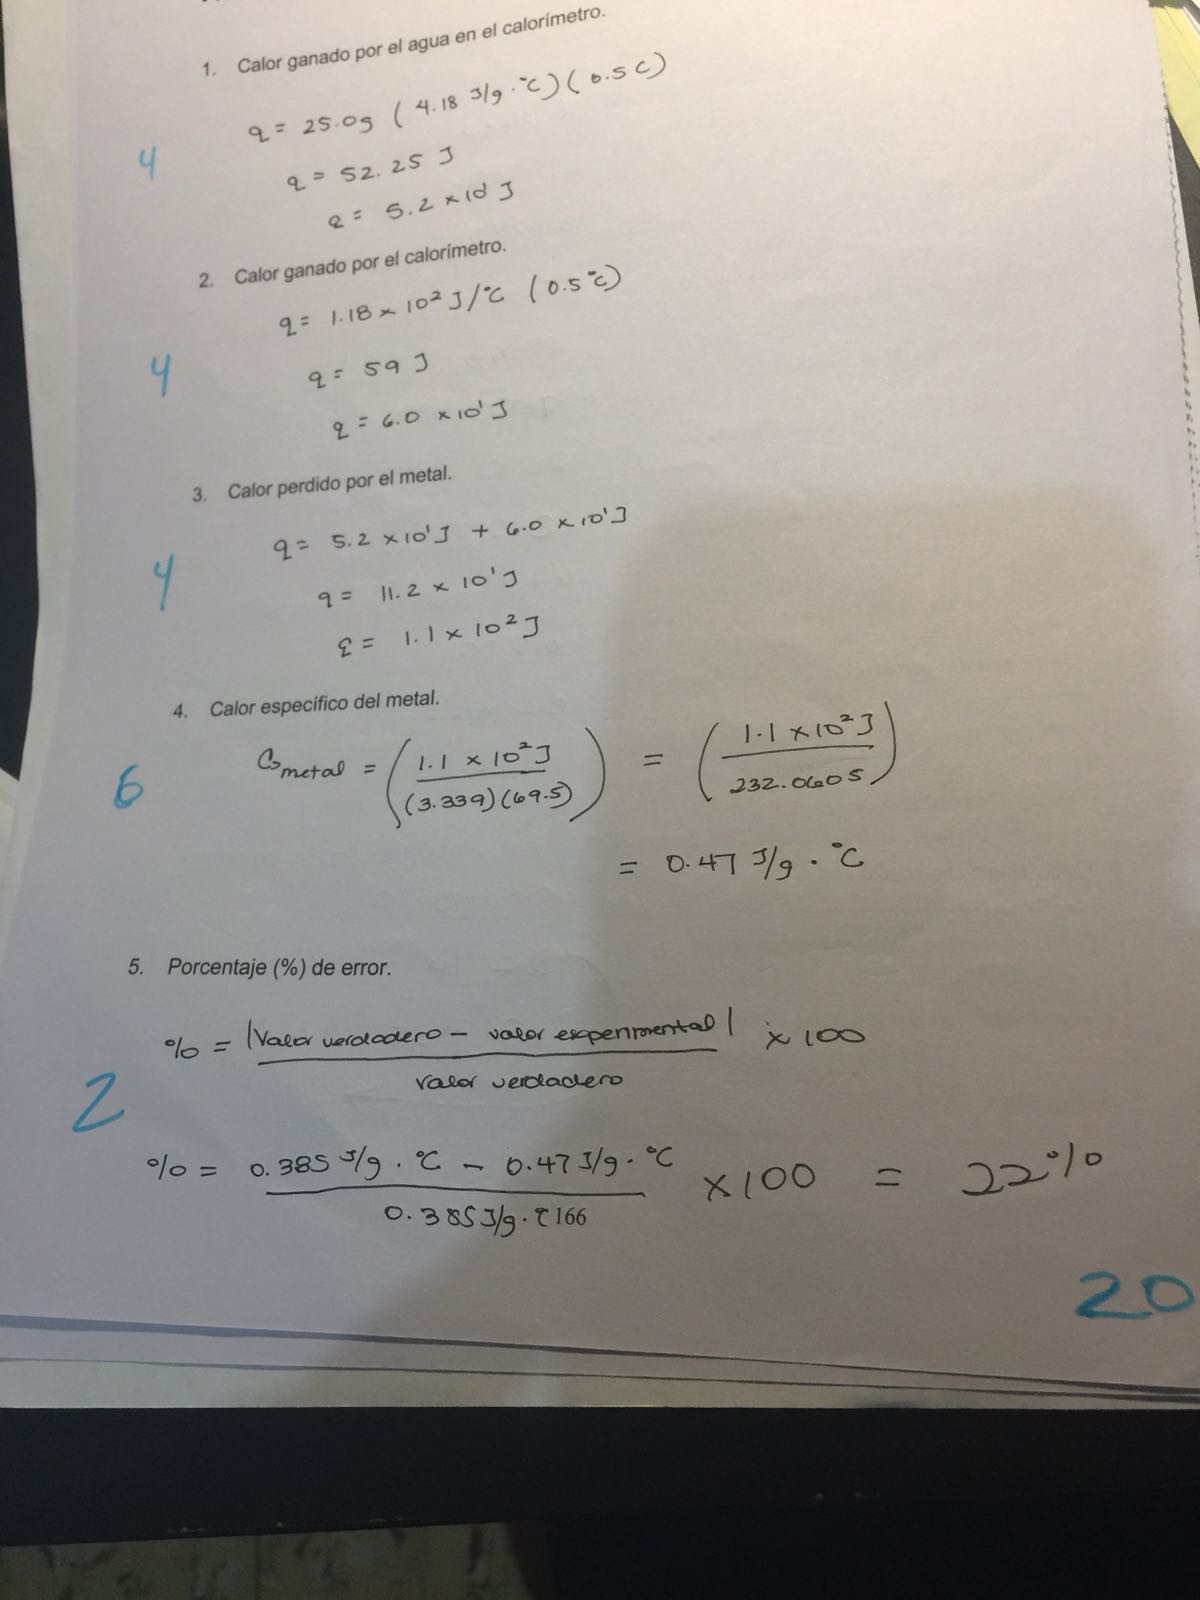 1. Calor ganado por el agua en el calorímetro.
q = 25.0g ( 4.18 J/g . °C) ( 0.5 C)
4
q = 52.25 J
q = 5.2 × 10¹ J
2. Calor ganado por el calorímetro.
q = 1.18 × 10² J/°C ( 0.5 °C)
4
q = 59 J
q = 6.0 × 10¹ J
3. Calor perdido por el metal.
q = 5.2 × 10¹ J + 6.0 × 10¹ J
4
q = 11.2 × 10¹ J
q = 1.1 × 10² J
4. Calor específico del metal.
Cs metal = ( 1.1 × 10² J / (3.339) (69.5) ) = ( 1.1 × 10² J / 232.0605 )
6
= 0.47 J/g . °C
5. Porcentaje (%) de error.
% = |Valor verdadero – valor experimental| × 100
valor verdadero
2
% = 0.385 J/g . °C – 0.47 J/g . °C × 100 = 22%
0.385 J/g . °C 166
20